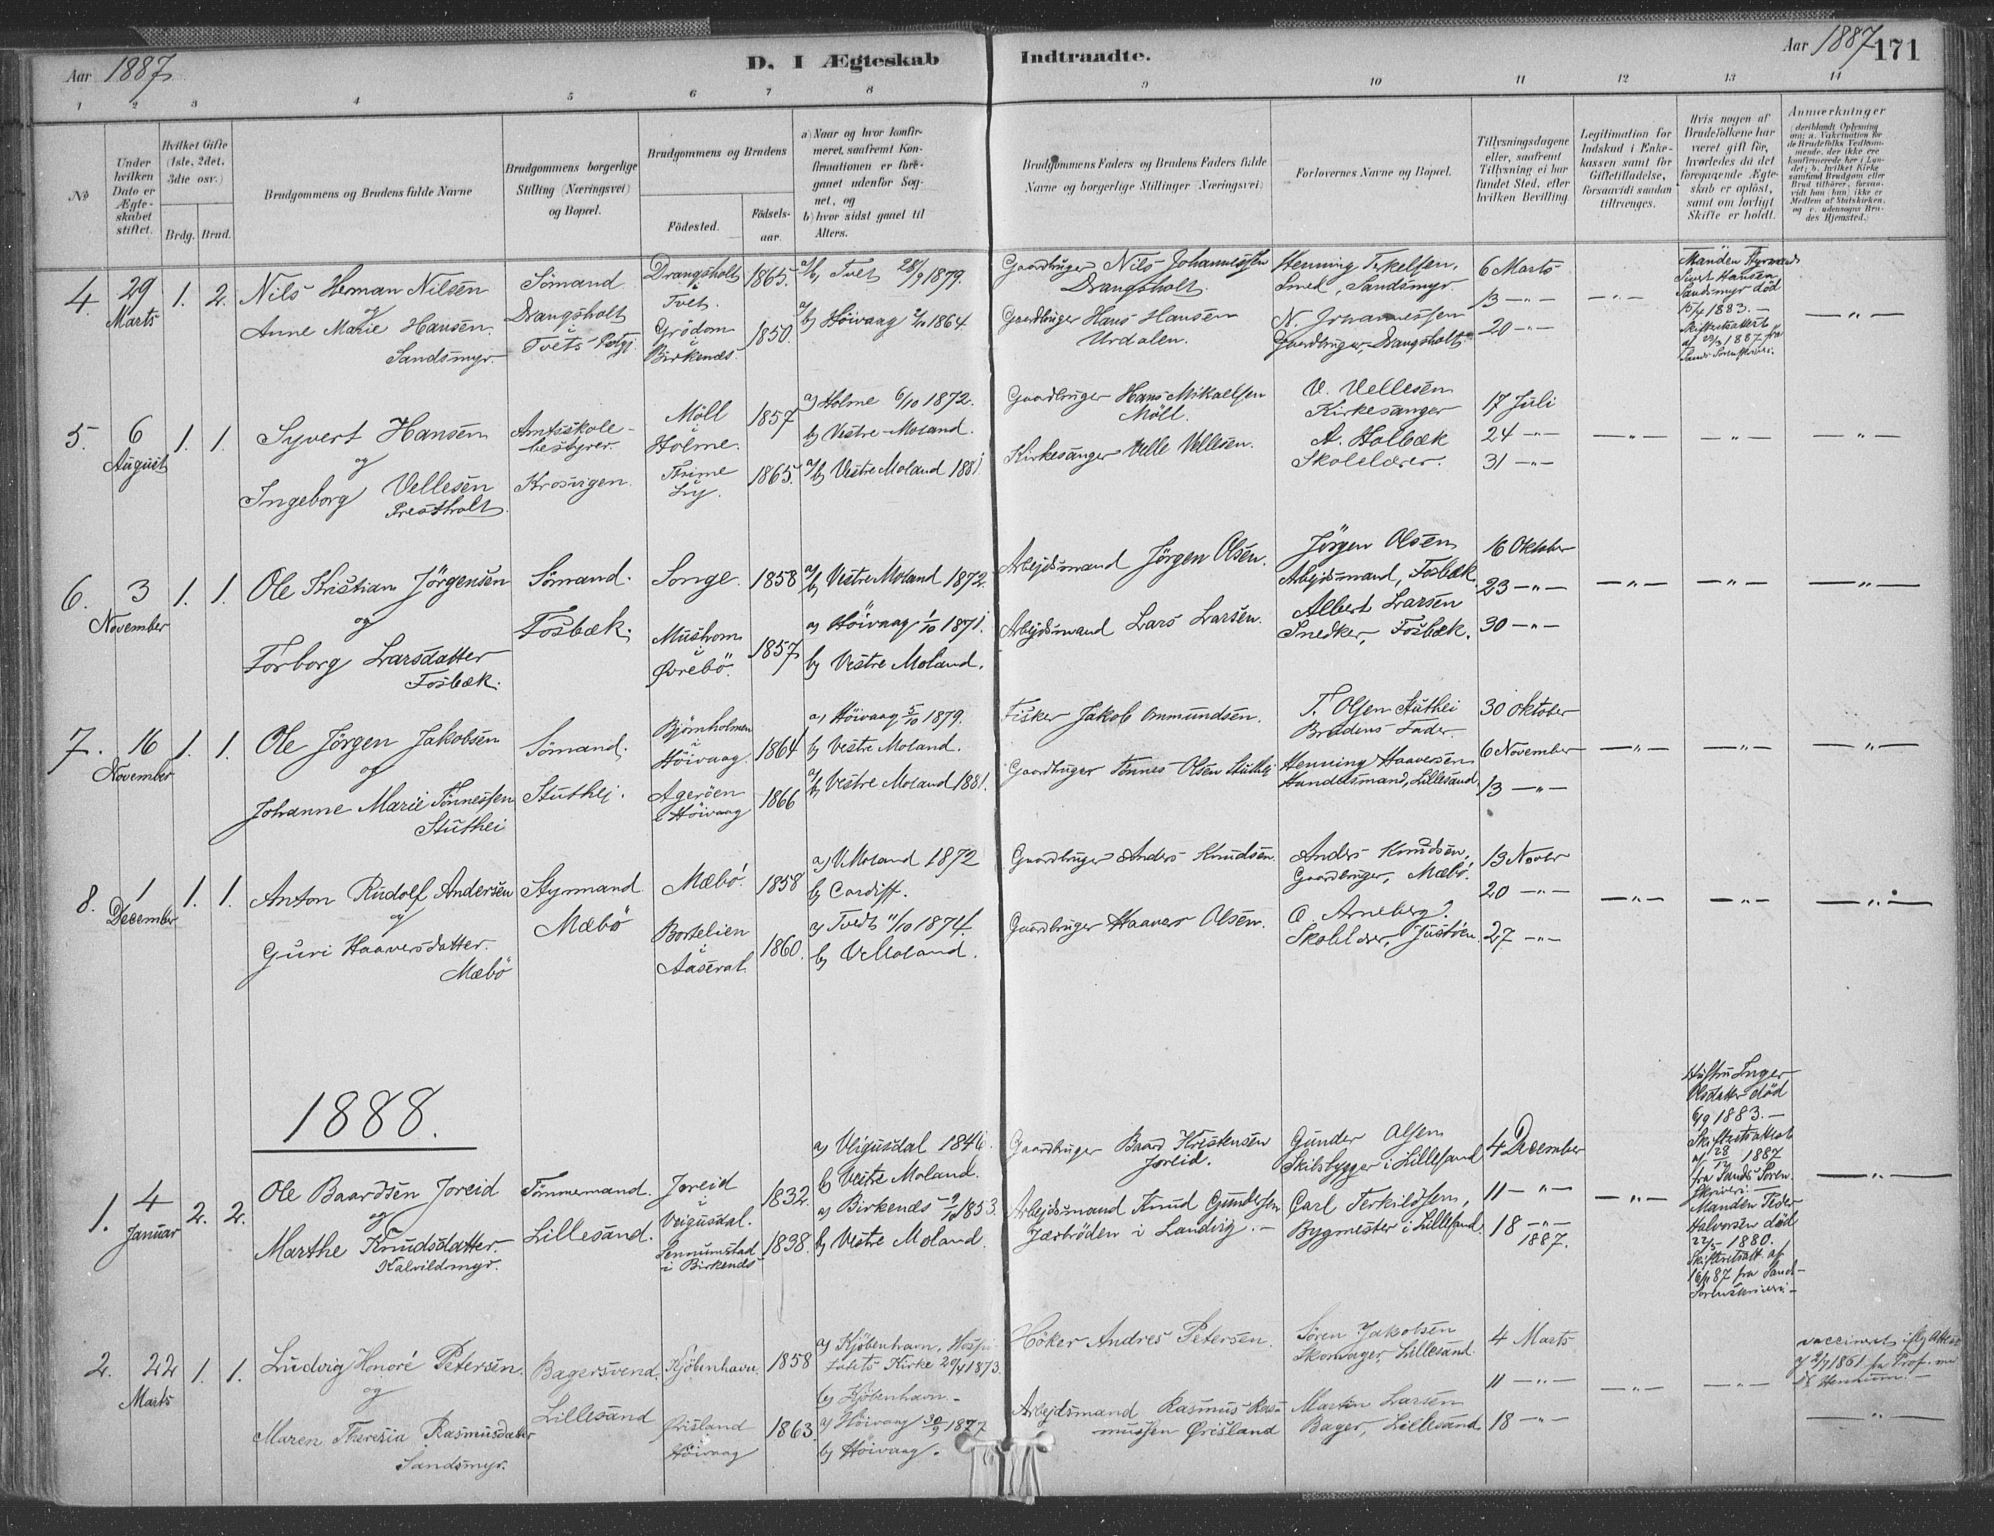 Aar 1887
D. I Ægteskab Indtraadte.
Aar 1887 171
1 2 3 4 5 6 7 8 9 10 11 12 13 14
No
Under hvilken Dato er Ægteskabet stiftet.
Hvilket Gifte (1ste, 2det, 3die osv.)
Brdg. Brud.
Brudgommens og Brudens fulde Navne
Brudgommens borgerlige Stilling (Næringsvei) og Bopæl.
Brudgommens og Brudens
Fødested. Fødselsaar.
a) Naar og hvor konfirmeret, saafremt Konfirmationen er foregaaet udenfor Sognet, og
b) hvor sidst gaaet til Alters.
Brudgommens Faders og Brudens Faders fulde Navne og borgerlige Stillinger (Næringsvei)
Forlovernes Navne og Bopæl.
Tillysningsdagene eller, saafremt Tillysning ei har fundet Sted, efter hvilken Bevilling.
Legitimation for Indskud i Enkekassen samt for Giftetilladelse, forsaavidt saadan tiltrænges.
Hvis nogen af Brudefolkene har været gift før, hvorledes da det foregaaende Ægteskab er opløst, samt om lovligt Skifte er holdt.
Anmærkninger
4. 29 Marts 1. 2.
Nils Herman Nilsen
og
Anne Marie Hansen.
Sandsmyr.
Sömand
Drangsholt
i
Tvets
Drangsholt
i
Tvet. 1865.
Grödom
i
Birkenes 1850.
a/b) Tvet 28/9 1879.
a/b) Höivaag 2/10 1864.
Gaardbruger Nils Johannessen
Drangsholt.
Gaardbruger Hans Hansen
Urdalen.
Henning Terkelsen,
Smed, Sandsmyr.
N. Johannessen
Gaardbruger, Drangsholt
6 Marts
13 —"—
20 —"—
—"—
Manden
Sivert Hansen
Sandsmyr död
1883.—
Skifteattest
1887 fra
—"—
5. 6 August 1. 1.
Syvert Hansen
og
Ingeborg Vellesen
Prestholt.
Amtsskole-
bestyrer.
Krosvigen.
Möll
i
Holme. 1857
Thime
Ly. 1865.
a) Holme 6/10 1872.
b) Vestre-Moland.
a/b) Vestre Moland 1881
Gaardbruger Hans Mikaelsen
Möll.
Kirkesanger Velle Vellesen.
V. Vellesen
Kirkesanger
A. Holbæk
Skolelærer.
17 Juli
24 —"—
31 —"—
—"— —"— —"—
6. 3 November 1. 1.
Ole Kristian Jörgensen
og
Torborg Larsdatter
Fosbæk.
Sömand.
Fosbæk.
Songe. 1858
i
Øvrebö. 1857
a/b) Vestre Moland 1872.
a) Höivaag 1/10 1871.
b) Vestre Moland.
Arbejdsmand Jörgen Olsen.
Arbejdsmand Lars Larsen.
Jörgen Olsen
Arbejdsmand, Fosbæk.
Albert Larsen
Snedker, Fosbæk.
16 Oktober
23 —"—
30 —"—
—"— —"— —"—
7. 16 November 1. 1.
Ole Jörgen Jakobsen
og
Johanne Marie Tönnessen
Stuthei
Sömand.
Stuthei.
Bjørnholmen
i
Höivaag. 1864
Ageröen
i Höivaag 1866
a) Höivaag 5/10 1879.
b) Vestre Moland.
a/b) Vestre Moland 1881.
Fisker Jakob Ommundsen.
Gaardbruger Tönnes Olsen Stuthei
T. Olsen Stuthei
Brudens Fader
Henning Haaversen
Handelsmand, Lillesand.
30 Oktober
6 November
13 —"—
—"— —"— —"—
8. 1 December 1. 1.
Anton Rudolf Andersen
og
Guri Haaversdatter.
Mæbö
Styrmand
Mæbö
Mæbö. 1858
Bortelien
i
Aaseral 1860.
a) V. Moland 1872
b) Cardiff.
a) Tvedt 11/10 1874.
b) V. Moland.
Gaardbruger Anders Knudsen.
Gaardbruger Haaver Olsen.
Anders Knudsen,
Gaardbruger, Mæbö.
O. Arneberg.
Skolelærer, Justöen.
13 Novbr
20 —"—
27 —"—
—"— —"— —"—
1888.
1. 4 Januar 2. 2.
Ole Baardsen Joreid
og
Marthe Knudsdatter.
Kalvildmyr.
Tömmermand.
Lillesand.
Joreid
i
Veigusdal. 1832.
i Birkenes 1838.
a) Veigusdal 1846.
b) Vestre Moland.
a) Birkenes 1853.
b) Vestre Moland.
Gaardbruger Baard Kristensen
Joreid.
Arbejdsmand Knud Gundersen
i Landvig.—
Gunder Olsen
Skibsbygger i Lillesand
Carl Terkildsen,
Bygmester i Lillesand.
4 December
11 —"—
18 —"—
1887.
—"—
Hustru Inger
Olsdatter död
6/9 1883.—
Skifteattest
af 28/12 1887
fra Sands Soren-
skriveri.—
Manden Peder
Halvorsen död
1880.
Skifteattest. af
87 fra Sand-
Sorenskriveri.—
—"—
2. 22 Marts 1. 1.
Ludvig Honoré Petersen.
og
Maren Theresia Rasmusdatter
Sandsmyr.
Bagersvend.
Lillesand
Kjöbenhavn. 1858
Ørisland
Höivaag 1863.
a) Kjöbenhavn, Hospi-
talets Kirke 20/4 1873.
b) Kjöbenhavn.—
a) Höivaag 30/9 1877
b) Höivaag.
Höker Andres Petersen.
Arbejdsmand Rasmus Ras-
mussen Ørisland
Sören Jakobsen
Skomager, Lillesand.
Martin Larsen
Bager, Lillesand.
4 Marts
11 —"—
18 —"—
—"— —"—
Vaccineret iflg Attest
af 1861 fra Prof.
—"—